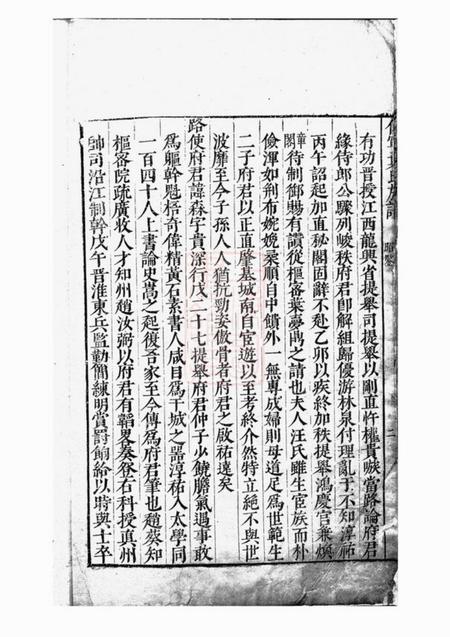 有功晉授江西龍興省提舉司提舉以剛直忤權貴嫉當路論府君
緣侍郎公驟列峻秩府君卽解組歸優游林泉付理亂于不知淳祐
丙午詔起加直秘閣固辭不赴乙卯以疾終加秩提舉鴻慶官兼煥
章閣待制御賜有讚從樞密葉夢鼎之請也夫人汪氏雖生宦族而朴
儉渾如荆布婉娩柔順自中饋外一無專成婦則母道足爲世範生
二子府君以正直肇基城南自宦遊以至考終介然特立絶不與世
波靡至今子孫人人猶抗勁姿傲骨者府君之啟祐遠矣
路使府君諱森字貴深行戊二十七提舉府君仲子少饒膽氣遇事敢
爲軀幹魁梧奇偉精黃石素書人咸目爲干城之器淳祐入太學同
一百四十人上書論史嵩之起復吾家至今傳爲府君筆也趙葵知
樞密院疏廣收人才知州趙汝弼以府君有韜畧奏登右科授真州
帥司沿江制幹戊午晉淮東兵監勤簡練明賞罰餉給以時與士卒